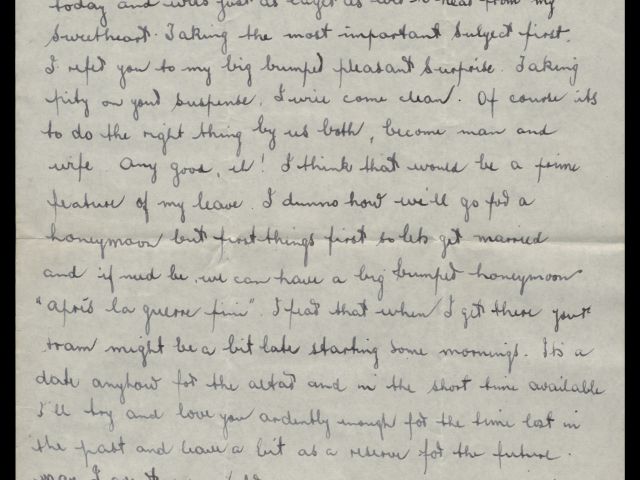 today and was just as eager as ever to hear from my
sweetheart. Taking the most important subject first,
I refer you to my big bumper pleasant surprise. Taking
pity on your suspense, I will come clean. Of course its
to do the right thing by us both, become man and
wife. Any good, eh! I think that would be a prime
feature of my leave. I dunno how we'll go for a
honeymoon but first things first so lets get married
and if need be, we can have a big bumper honeymoon
"apris la guerre fini". I fear that when I get there your
tram might be a bit late starting some mornings. Its a
date anyhow for the altar and in the short time available
I'll try and love you ardently enough for the time lost in
the past and leave a bit as a reserve for the future.